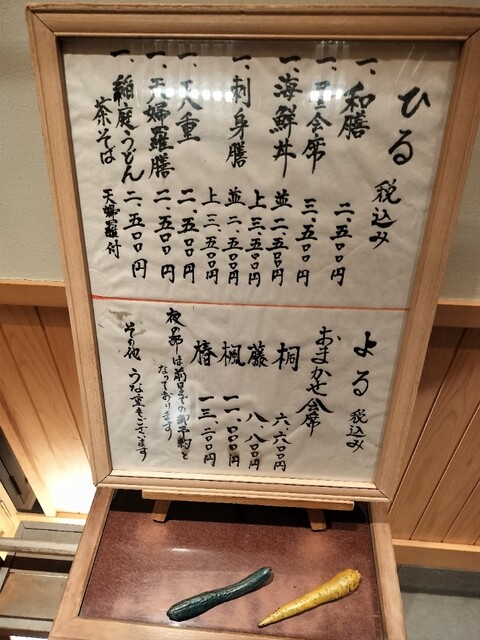 ひる 税込み
一、和膳 二、五〇〇円
一、昼会席 三、五〇〇円
一、海鮮丼 並 二、五〇〇円
上 三、五〇〇円
一、刺身膳 並 二、五〇〇円
上 三、五〇〇円
一、天重 二、五〇〇円
一、天婦羅膳 二、五〇〇円
一、稲庭うどん 二、五〇〇円
茶そば 天婦羅付
よる 税込み
おまかせ会席
桐 六、六〇〇円
藤 八、八〇〇円
楓 一一、〇〇〇円
椿 一三、二〇〇円
夜の部は前日までの御予約と
なっております
その他 うな重もございます